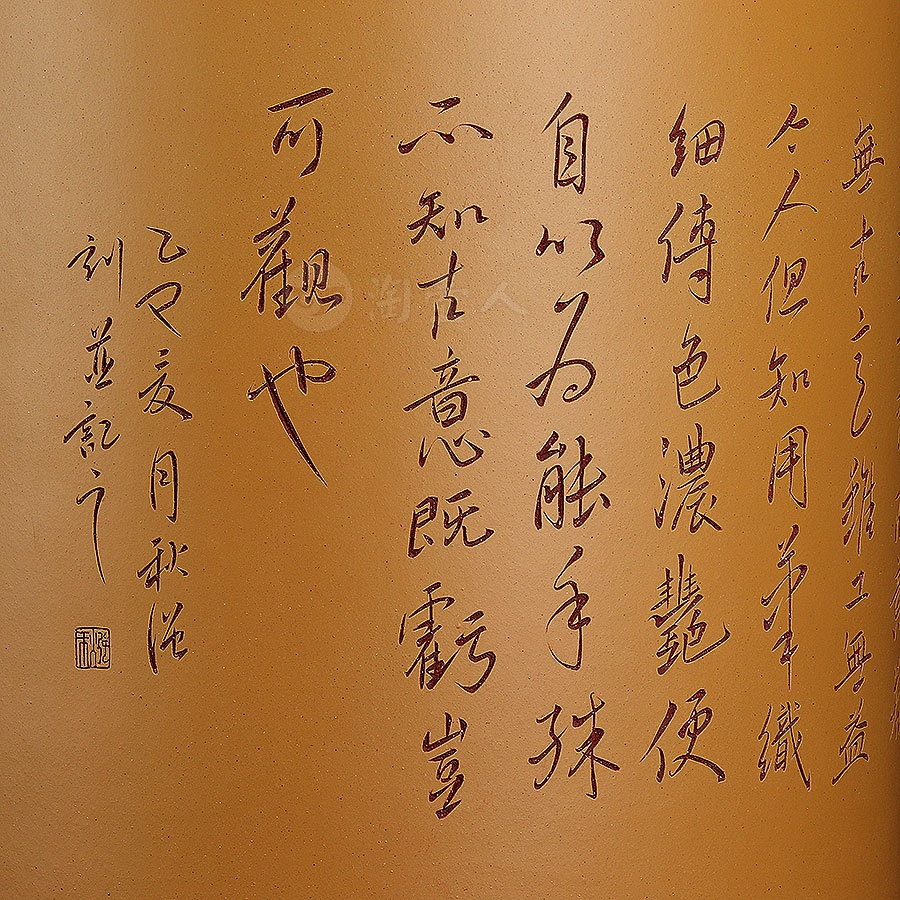 無古意雖工無益
今人但知用筆纖
細傅色濃艷便
自以為能手殊
不知古意既虧豈
可觀也
乙夏月秋
刻並記之
淘壶人